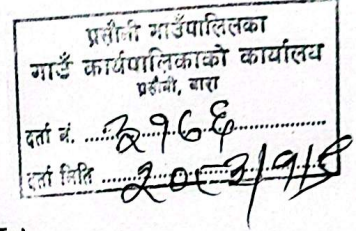 प्रसौनी गाउँपालिका
गाउँ कार्यपालिकाको कार्यालय
प्रसौनी, बारा
दर्ता नं. ३१८६
दर्ता मिति २०८२/१/६